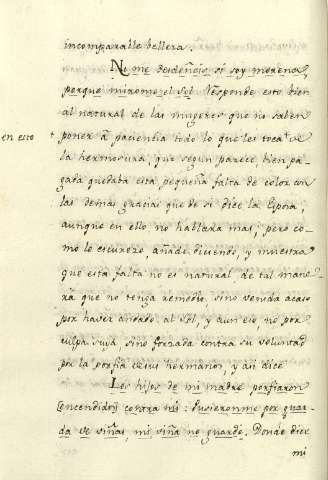 incomparable belleza.
No me desdeñeis si soy morena,
porque mirome el sol. Responde esto bien
al natural de las mugeres que no saben
en esto
poner à paciencia todo lo que les toca de
la hermosura, que segun parece bien pa-
gada quedaba esta pequeña falta de color con
las demas gracias que de si dice la Esposa,
aunque en ello no hallara mas; pero co-
mo le escueze, añade diciendo, y muestra
que esta falta no es natural, de tal mane-
ra que no tenga remedio, sino venida acaso
por haver andado al sol, y aun eso, no por
culpa suya sino forzada contra su voluntad
por la porfia de sus hermanos, y asi dice
Los hijos de mi madre porfiaron
encendidos contra mi: Pusieronme por guar-
da de viñas, mi viña no guarde. Donde dice
mi